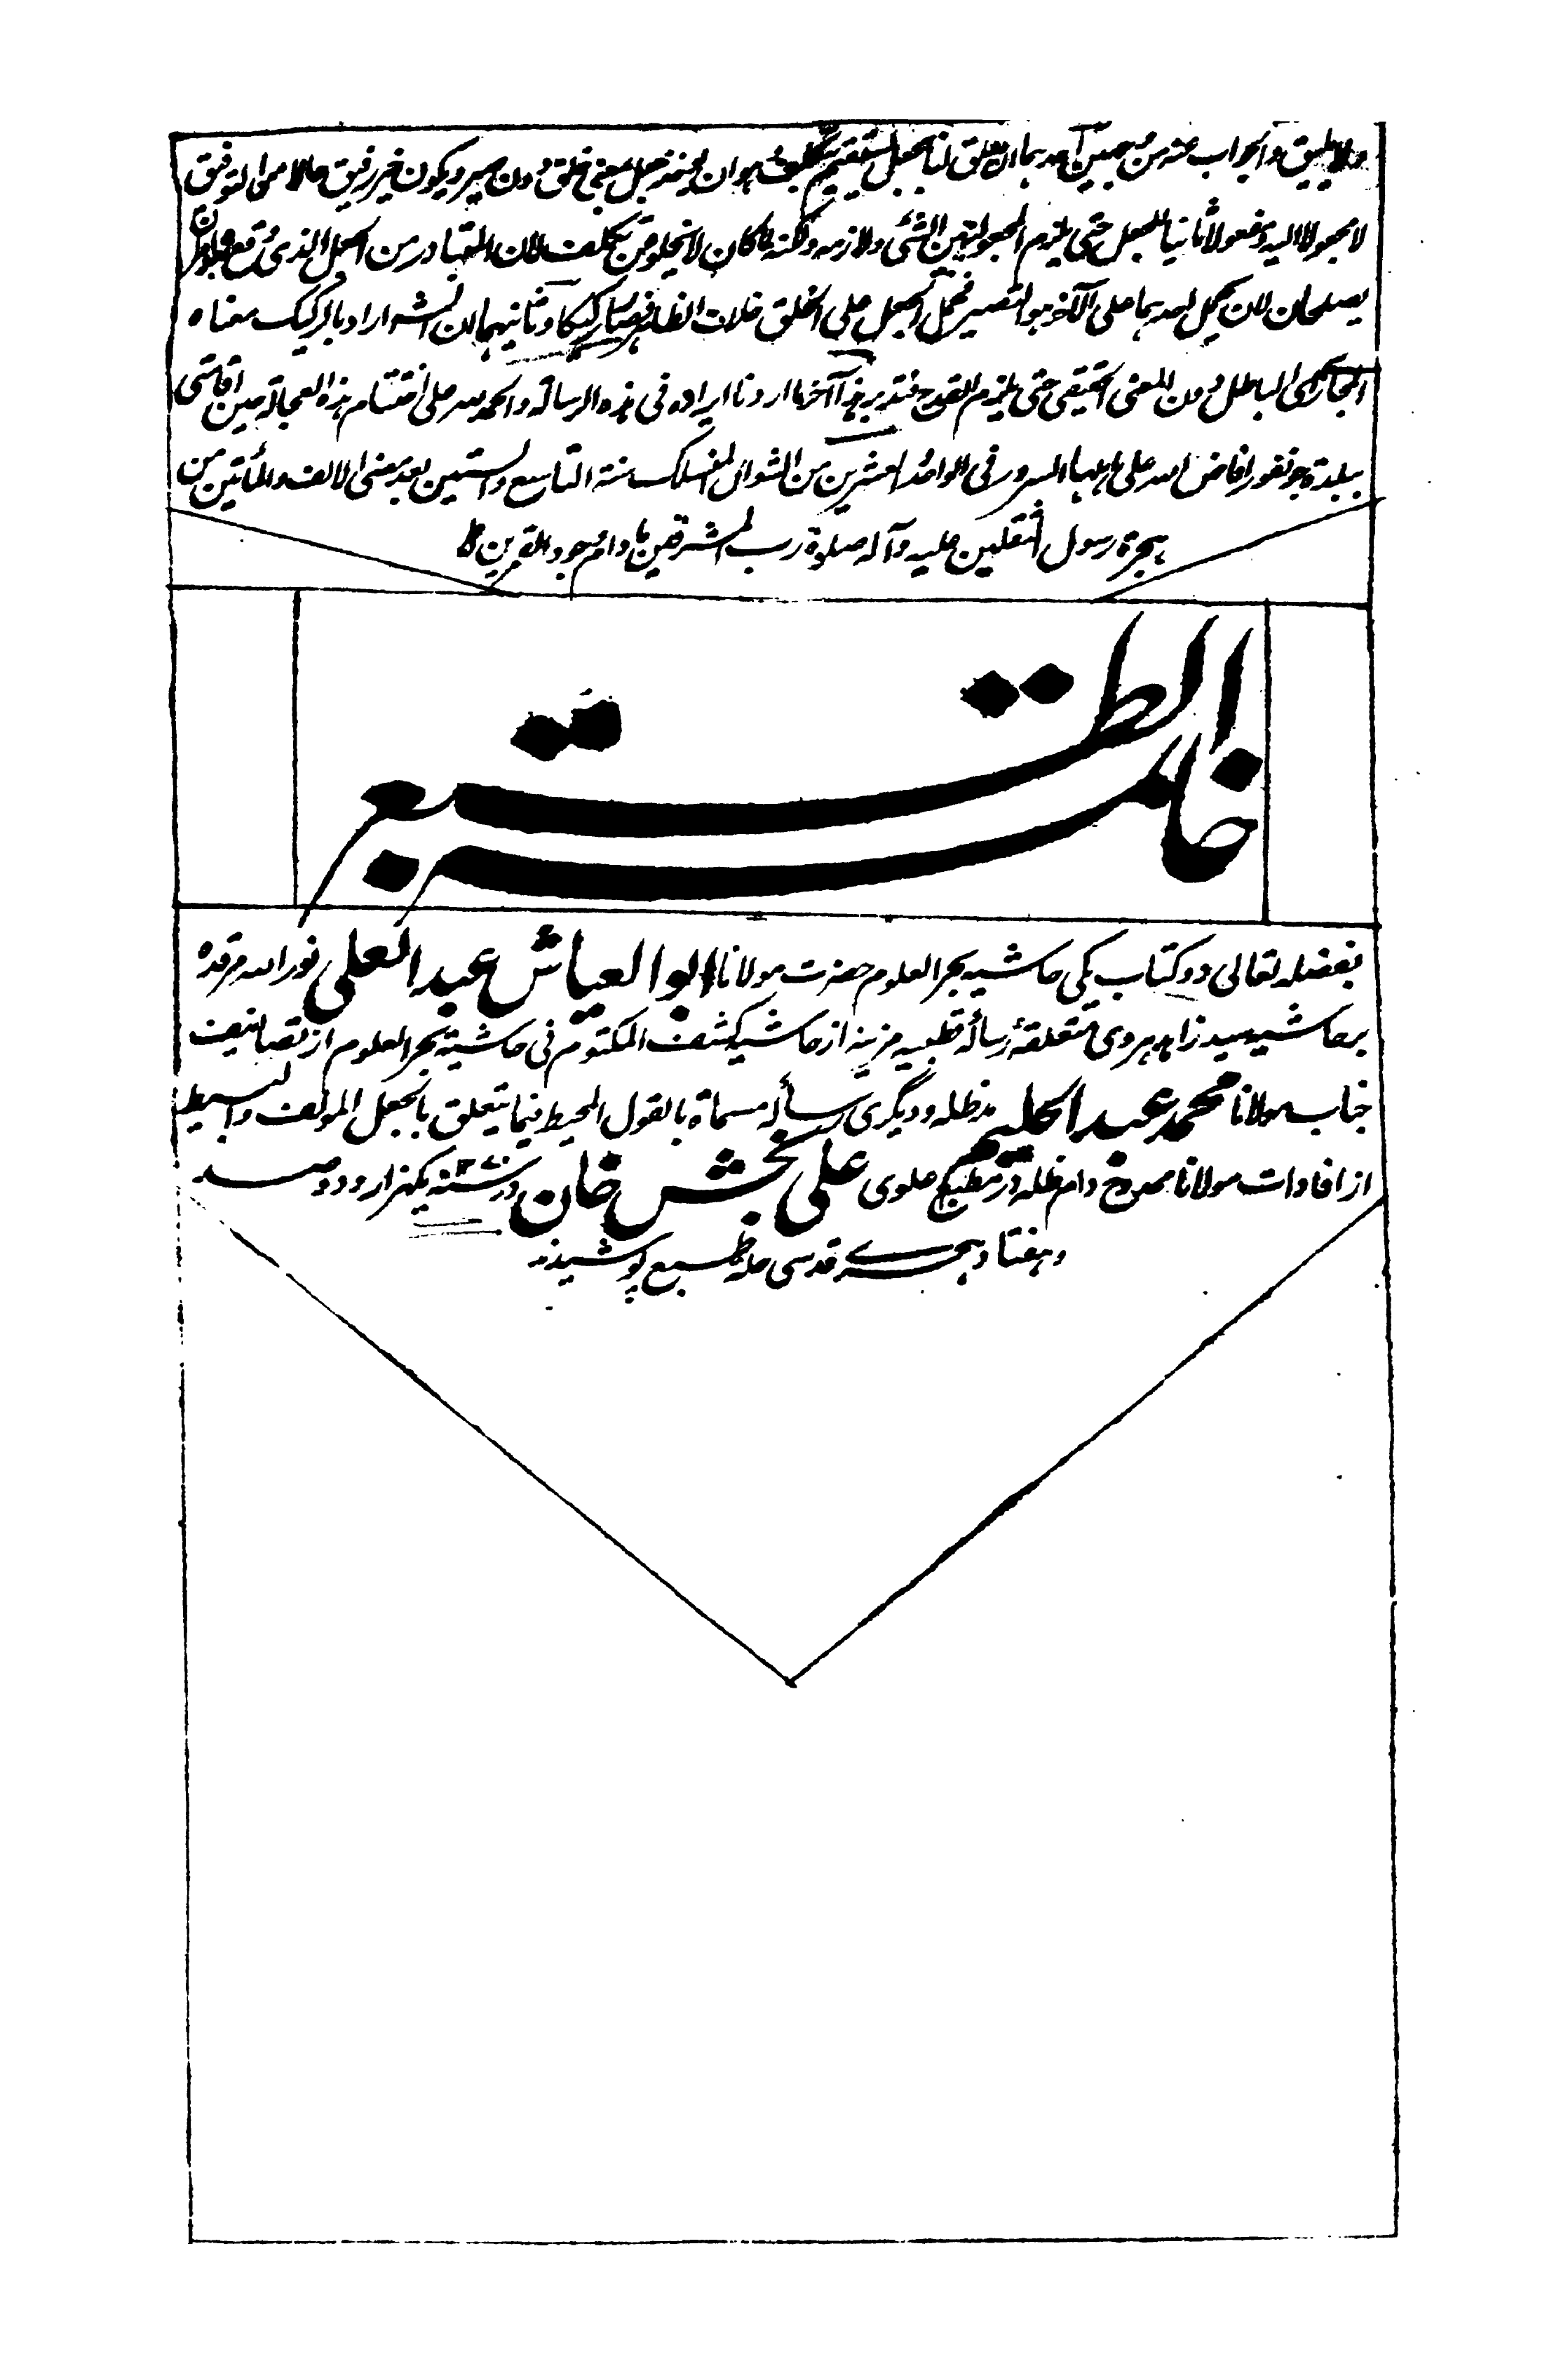 ولا يليق والجواب عنه من وجهين احدهما ان تعلق لنا بجعل يستقيم بتكلف هو ان يؤخذ جعل بمعنى خلق دون صير ويكون خير رفيق حالا من التوفيق
لا مجعولا اليه ومفعولا ثانيا للجعل حتى يلزم المجعولية بين الشئ ولازمه ولكنه لما كان لا يخلو عن تكلف لان المتبادر من الجعل الذى وقع
يصلحان لان يحمل احدهما على الآخر هو التصيير فحمل الجعل على الخلق خلاف الظاهر فصار ركيكا وثانيهما ان الشه اراد بالركيك معناه
المجازى الباطل دون المعنى الحقيقى حتى يلزم القدح فتدبر هذا آخر ما اردنا ايراده فى هذه الرسالة والحمد لله على اختتام هذه العجالة حين اقامتى
ببلدة جونفور افاض الله على اهلها السرور فى الواحد العشرين من الشوال المنسلك سنة التاسع والستين بعد مضى الالف والمأتين من
هجرة رسول الثقلين عليه وآله صلوة رب المشرقين ما دام وجود القمرين
خاتمة الطبع
بفضله تعالى دو كتاب يكى حاشيه بحر العلوم حضرت مولانا ابو العياش عبد العلى نور الله مرقده
بر حاشيه سيد زاهد هروى متعلقهٔ رسالهٔ قطبيه مزينه از حاشيه كشف المكتوم فى حاشية بحر العلوم از تصانيف
جناب مولانا محمد عبد الحليم مدظله وديگرى رساله مسماة بالقول المحيط فيما يتعلق بالجعل المؤلف والبسيط
از افادات مولانا ممدوح دام ظله در مطبع علوى على بخش خان در سنه ۱۲۷۰ يكهزار ودو صد
وهفتاد هجرى قدسى حله طبع پوشيدند